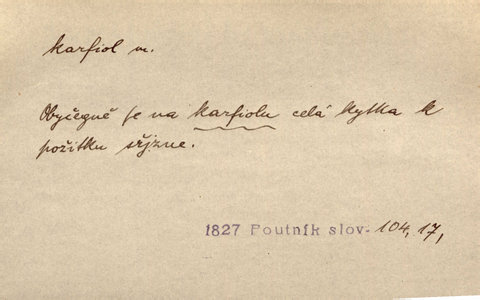 karfiol m.
Obyčegně se na karfiolu celá kytka k
požitku sřjzne.
1827 Poutník slov. 104, 17,